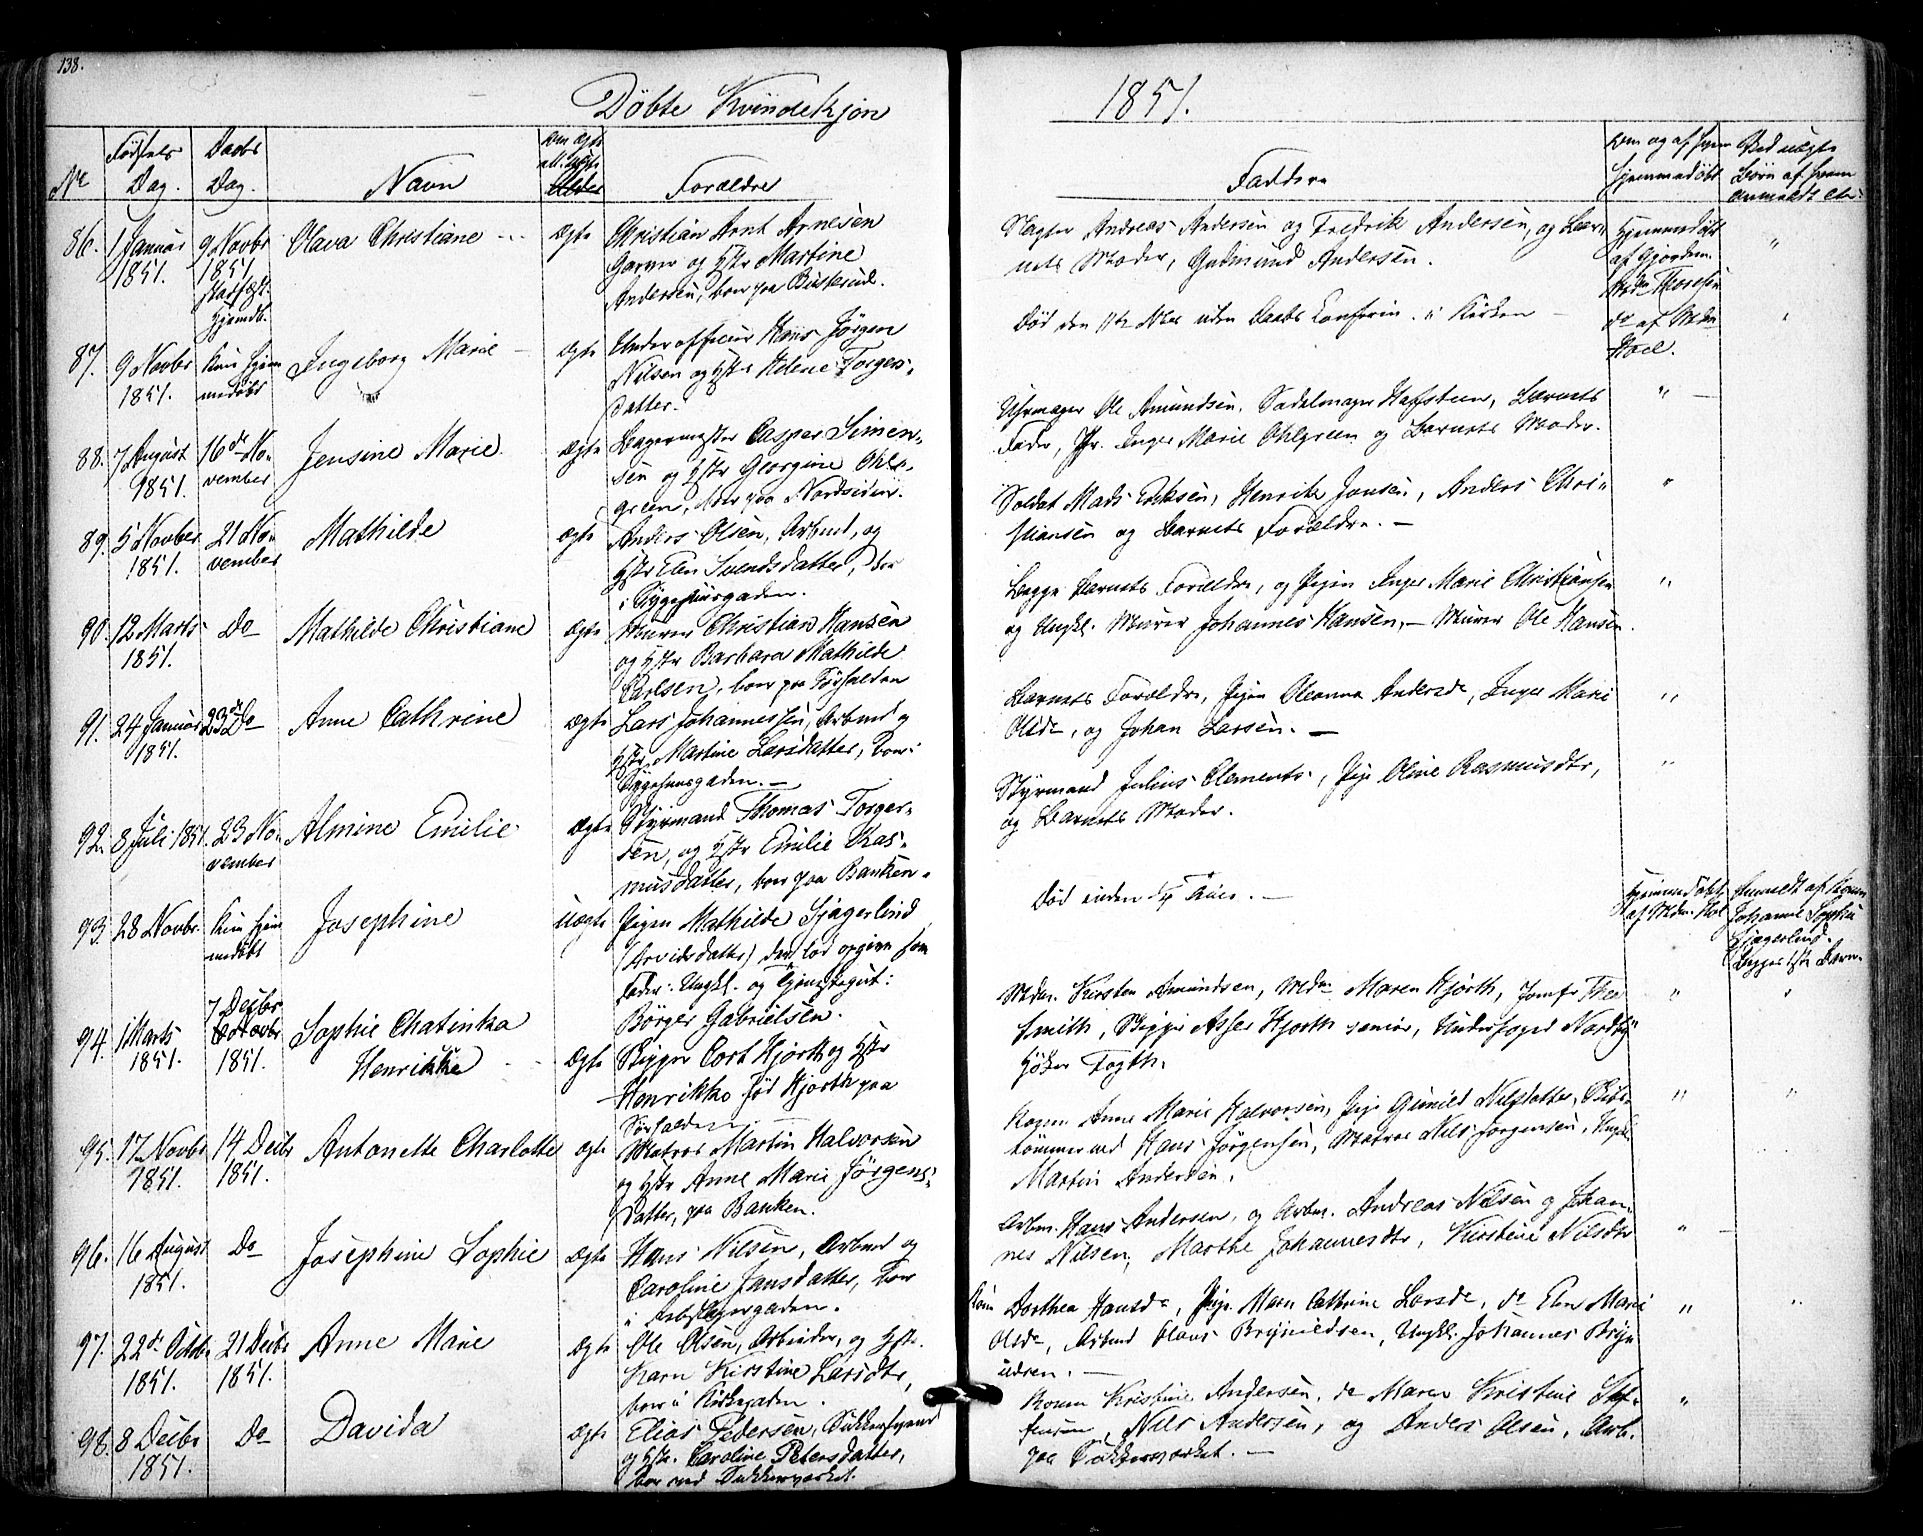 138.
Döbte Kvindekjön
1851.
No
Födsels Dag.
Daabs Dag.
Navn
Om Ægte ell. Uægte
Forældre
Faddere
Om og af hvem hjemmedöbt
Ved uægte Börn af hvem anmeldt etc.
86. 1 Januar 1851.
9 Novbr 1851 stadfæst. Hjemdb.
Olava Christiane
Ægte
Christian Arnt Arnesen
Garver og Hstr Martine
Andersen, boer paa Buskerud.
Slagter Andreas Andersen og Fredrik Andersen, og Bar-
nets Moder, Gudmund Andersen.
Hjemmedöbt af Gjordem. Mdm Thoresen
"
87. 9 Novbr 1851.
Kun hjemmedöbt
Ingeborg Marie
Ægte
Underofficeer Hans Jörgen
Nilsen og Hstr Helene Torgers-
datter.
Död den uden Daabs Confirm. i Kirken
do af Mdm Hoel.
"
88. 7 August 1851.
16de November
Jensine Marie
Ægte
Bagermester Casper Simen-
sen og Hstr Georgine Ohl-
green, boer paa Nordsiden.
Uhrmager Ole Amundsen, Sadelmager Hafsteen, Barnets
Fader, Inger Marie Ohlgreen og Barnets Moder.
"
89. 5 Novber 1851.
21 November
Mathilde
Ægte
Anders Olsen, Arbmd, og
Hstr Elen Svendsdatter, boer
i Sygehuusgaden.
Soldat Mads Eriksen, Henrik Jansen, Anders Chri-
stiansen og Barnets Forældre. —
"
90. 12 Marts 1851.
Do
Mathilde Christiane
Ægte
Murer Christian Hansen
og Hstr Barbara Mathilde
Carlsen, boer paa Törfalden
Begge Barnets Forældre, og Pigen Inger Marie Christiansen
og Ungkl. Murer Johannes Hansen, — Murer Ole Hansen.
"
91. 24 Januar 1851.
23de Do
Anne Cathrine
Ægte
Lars Johannessen, Arbmd og
Hstr Martine Larsdatter, boer i
Sygehuusgaden. —
Barnets Forældre, Pigen Oleanna Andersd, Inger Marie
Olsdr, og Johan Larsen. —
"
92. 8 Juli 1851.
23 November
Almine Emilie
Ægte
Styrmand Thomas Torger-
sen, og Hstr Emilie Ras-
musdatter, boer paa Banken.
Styrmand Julius Clements, Pige Oline Rasmusdtr,
og Barnets Moder.
"
93. 28 Novbr.
Kun hjemmedöbt
Josephine
Uægte
Pigen Mathilde Sjagerlind
(Arvidsdatter) der lod opgive som
Fader: Ungkl. og Tjenestegut:
Börger Gabrielsen.
Död inden Daae. —
Hjemmedöbt af Mdm. Hol
Anmeldt af Konen Johanne Sophie Sjagerlind. Begges 1ste Barn.
94. 1 Marts 1851.
7 Decbr 1851.
Sophie Chatinka
Henrikke
Ægte
Skipper Cort Hjorth og Hstr
Henrikke föd Hjorth paa
Törfalden
Mdm. Kirsten Amundsen, Mdm Maren Hjorth, Jomfr Thea
Smith, Skipper Asser Hjorth senior, Underfoged Nordby
Höker Fogth.
"
"
95. 17 Novbr 1851.
14 Decbr 1851.
Antonette Charlotte
Ægte
Matros Martin Halvorsen
og Hstr Anne Marie Jörgens-
datter, paa Banken.
Konen Anne Marie Halvorsen, Pige Gunild Nilsdatter,
tömmermd Hans Jörgensen, Matros Nils Jörgensen, Ungkl.
Martin Andersen.
"
"
96. 16 August 1851.
Do
Josephine Sophie
Ægte
Hans Nilsen, Arbmd og
Caroline Jansdatter, boer
i
Arbm. Hans Andersen, og Arbm. Andreas Nilsen og Johan-
nes Nilsen, Marthe Johannesdtr, Kirstine Nilsdtr
"
97. 22de Octbr 1851.
21 Decbr 1851.
Anne Marie
Ægte
Ole Olsen, Arbeider, og Hstr.
Karn Kirstine Larsdtr,
boer i Kirkegaden.
Kone Dorthea Hansdr, Pige Maren Cathrine Larsdr, do Elen Marie
Olsdr, Arbmd Olaus Brynildsen, Ungkl. Johannes Bryn-
ildsen. —
"
"
98. 8 Decbr 1851.
Do
Davida
Ægte
Elias Pedersen, Sukkerhuusmd
og Hstr. Caroline Petersdatter,
boer ved Sukkerværket.
Konen Kristine Andersen, do Maren Kristine Stef-
fensen, Nils Andersen, og Anders Olsen, Arb.
paa Sukkerværket. —
"